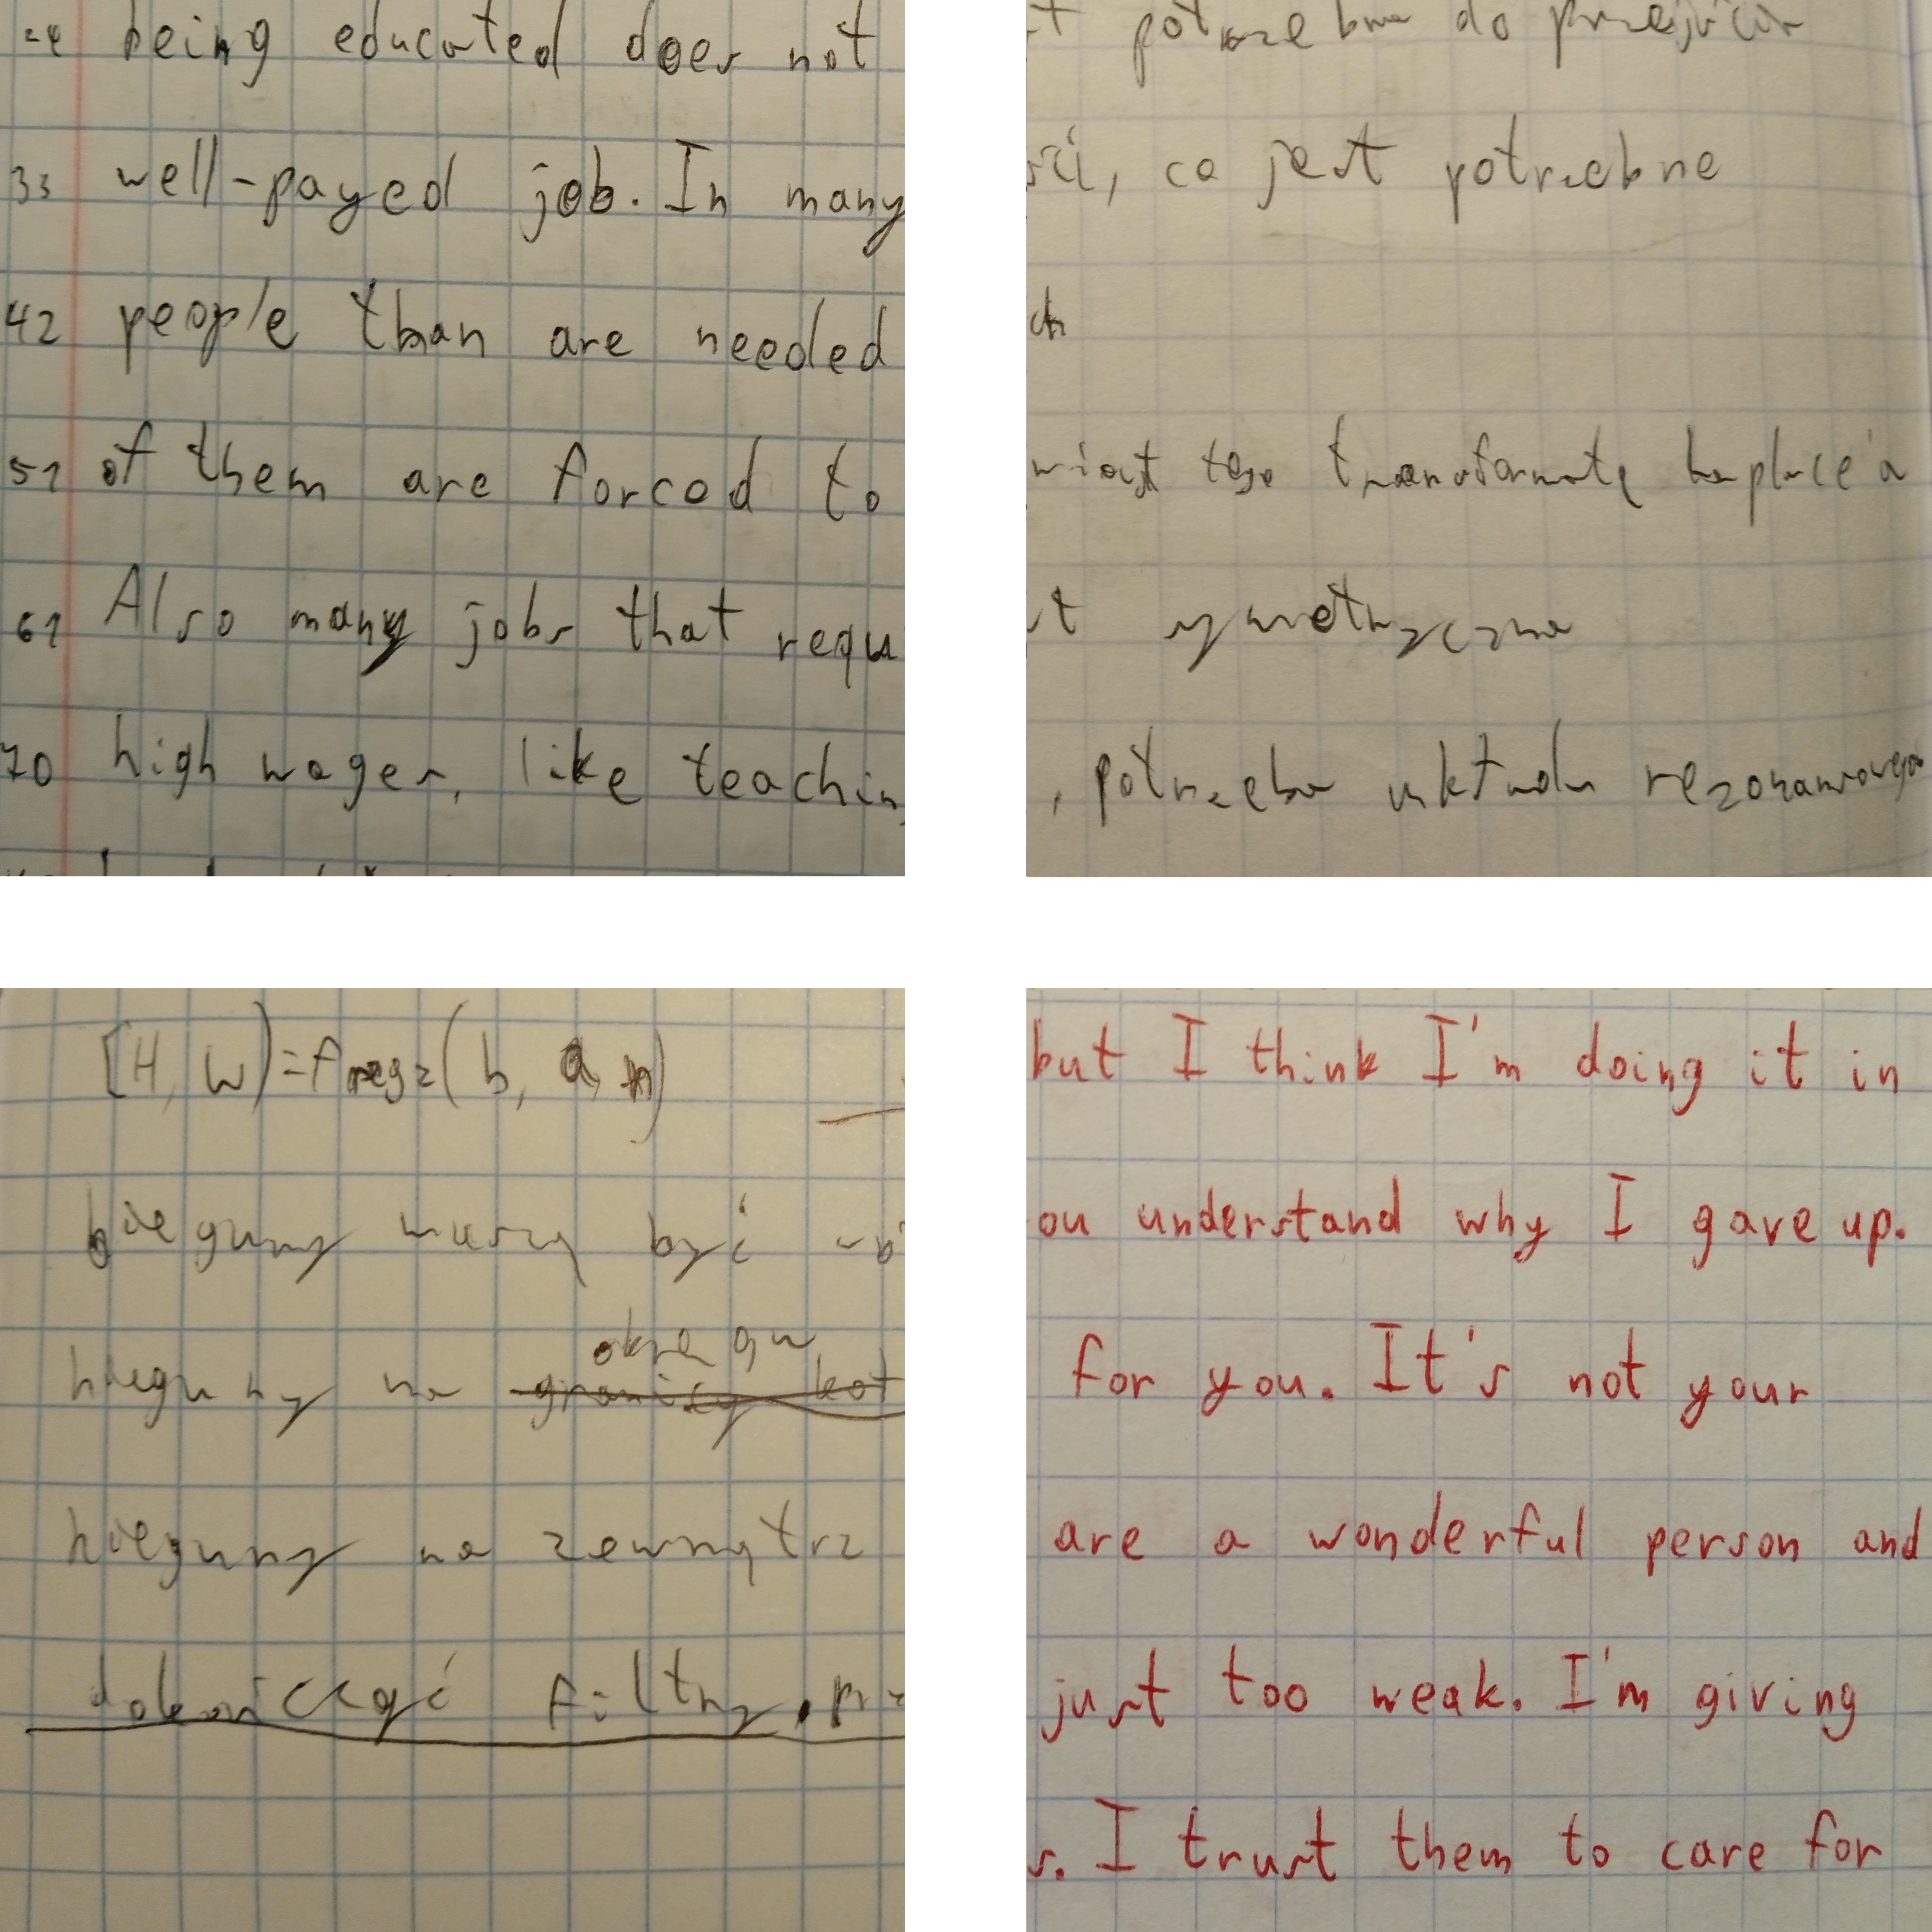 24 being educated does not
33 well-payed job. In many
42 people than are needed
51 of them are forced to
61 Also many jobs that requ
70 high wages, like teachin
potrzebne do przejścia
ści, co jest potrzebne
ch
miast tego transformatę Laplace'a
t symetryczne
, potrzeba układu rezonansowego
[H, W)=freqz(b, a, n)
bieguny muszą być
okręgu
bieguny na granicy kot
bieguny na zewnątrz
dokończyć filtry,
but I think I'm doing it in
ou understand why I gave up.
for you. It's not your
are a wonderful person and
just too weak. I'm giving
s. I trust them to care for